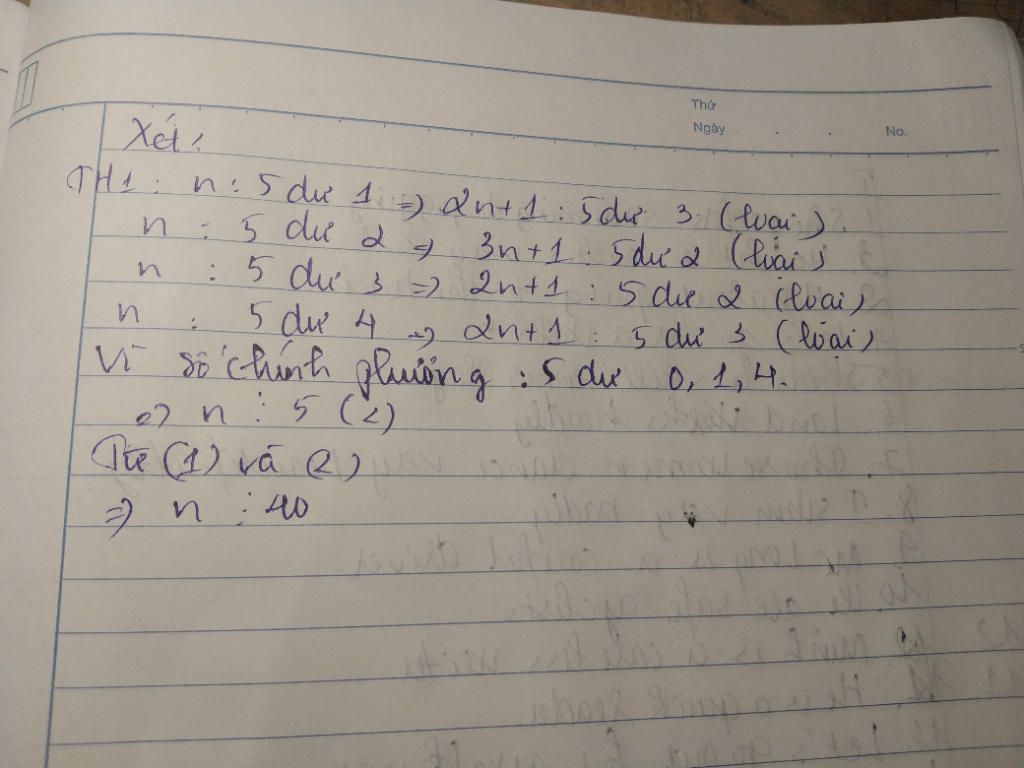 Thứ
Ngày . . No.
Xét:
TH1: n : 5 dư 1 => 2n+1 : 5 dư 3 (loại)
n : 5 dư 2 => 3n+1 : 5 dư 2 (loại)
n : 5 dư 3 => 2n+1 : 5 dư 2 (loại)
n : 5 dư 4 => 2n+1 : 5 dư 3 (loại)
Vì số chính phương : 5 dư 0, 1, 4.
=> n ⋮ 5 (2)
Từ (1) và (2)
=> n ⋮ 40